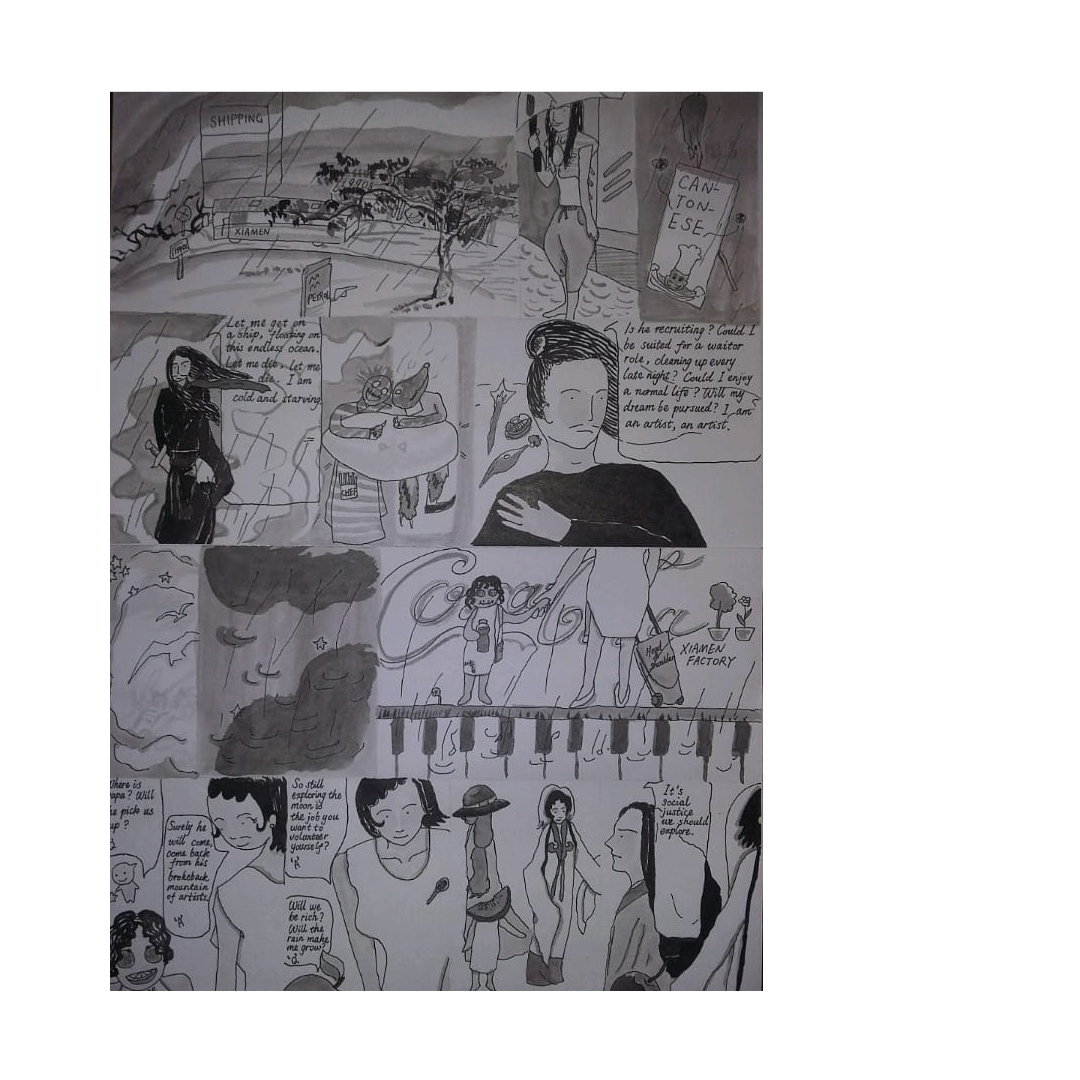 SHIPPING
XIAMEN
1990s
PETROL
CAN-
TON-
ESE
Let me get on
a ship, floating on
this endless ocean.
Let me die, let me
die. I am
cold and starving
CHEF
Is he recruiting? Could I
be suited for a waitor
role, cleaning up every
late night? Could I enjoy
a normal life? Will my
dream be pursued? I am
an artist, an artist.
Coca Cola
Head
&
Shoulders
XIAMEN
FACTORY
Where is
papa? Will
he pick us
up?
Surely he
will come,
come back
from his
brokeback
mountain
of artists.
So still
exploring the
moon is
the job you
want to
volunteer
yourself?
Will we
be rich?
Will the
rain make
me grow?
It's
social
justice
we should
explore.